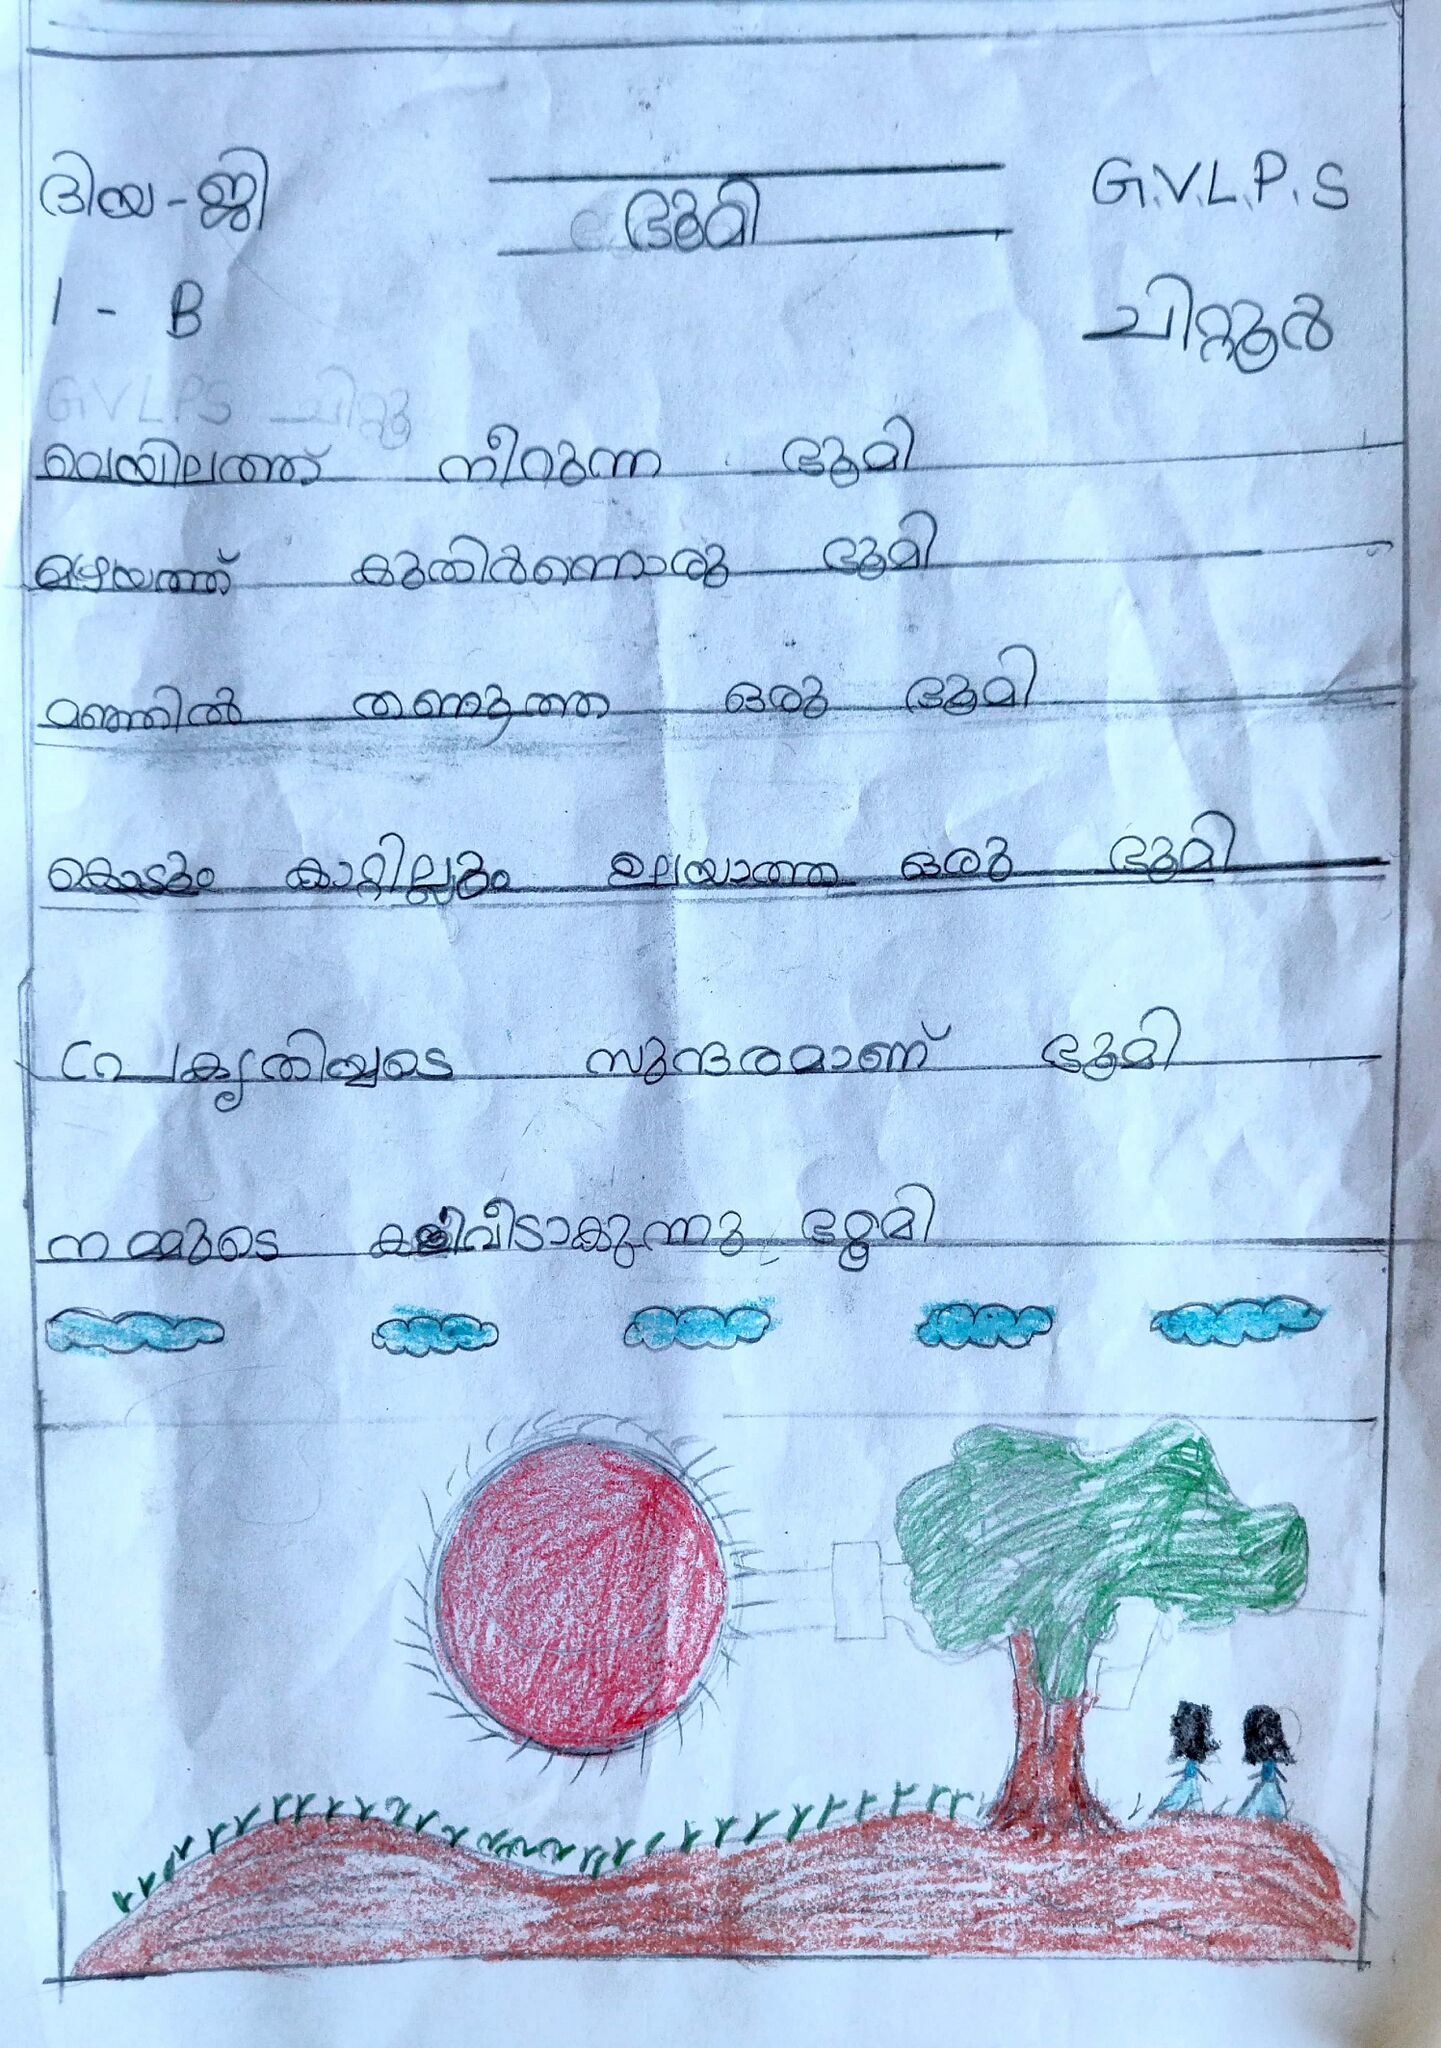 ദിയ - ജി
ഭൂമി
G.V.L.P.S
1 - B
ചിറ്റൂർ
GVLPS ചിറ്റൂ
വെയിലത്ത് നീറുന്ന ഭൂമി
മഴയത്ത് കുതിർന്നൊരു ഭൂമി
മഞ്ഞിൽ തണുത്ത ഒരു ഭൂമി
കൊടും കാറ്റില്ലും ഉലയാത്ത ഒരു ഭൂമി
പ്രകൃതിയുടെ സുന്ദരമാണ് ഭൂമി
നമ്മുടെ കളിവീടാകുന്നു ഭൂമി